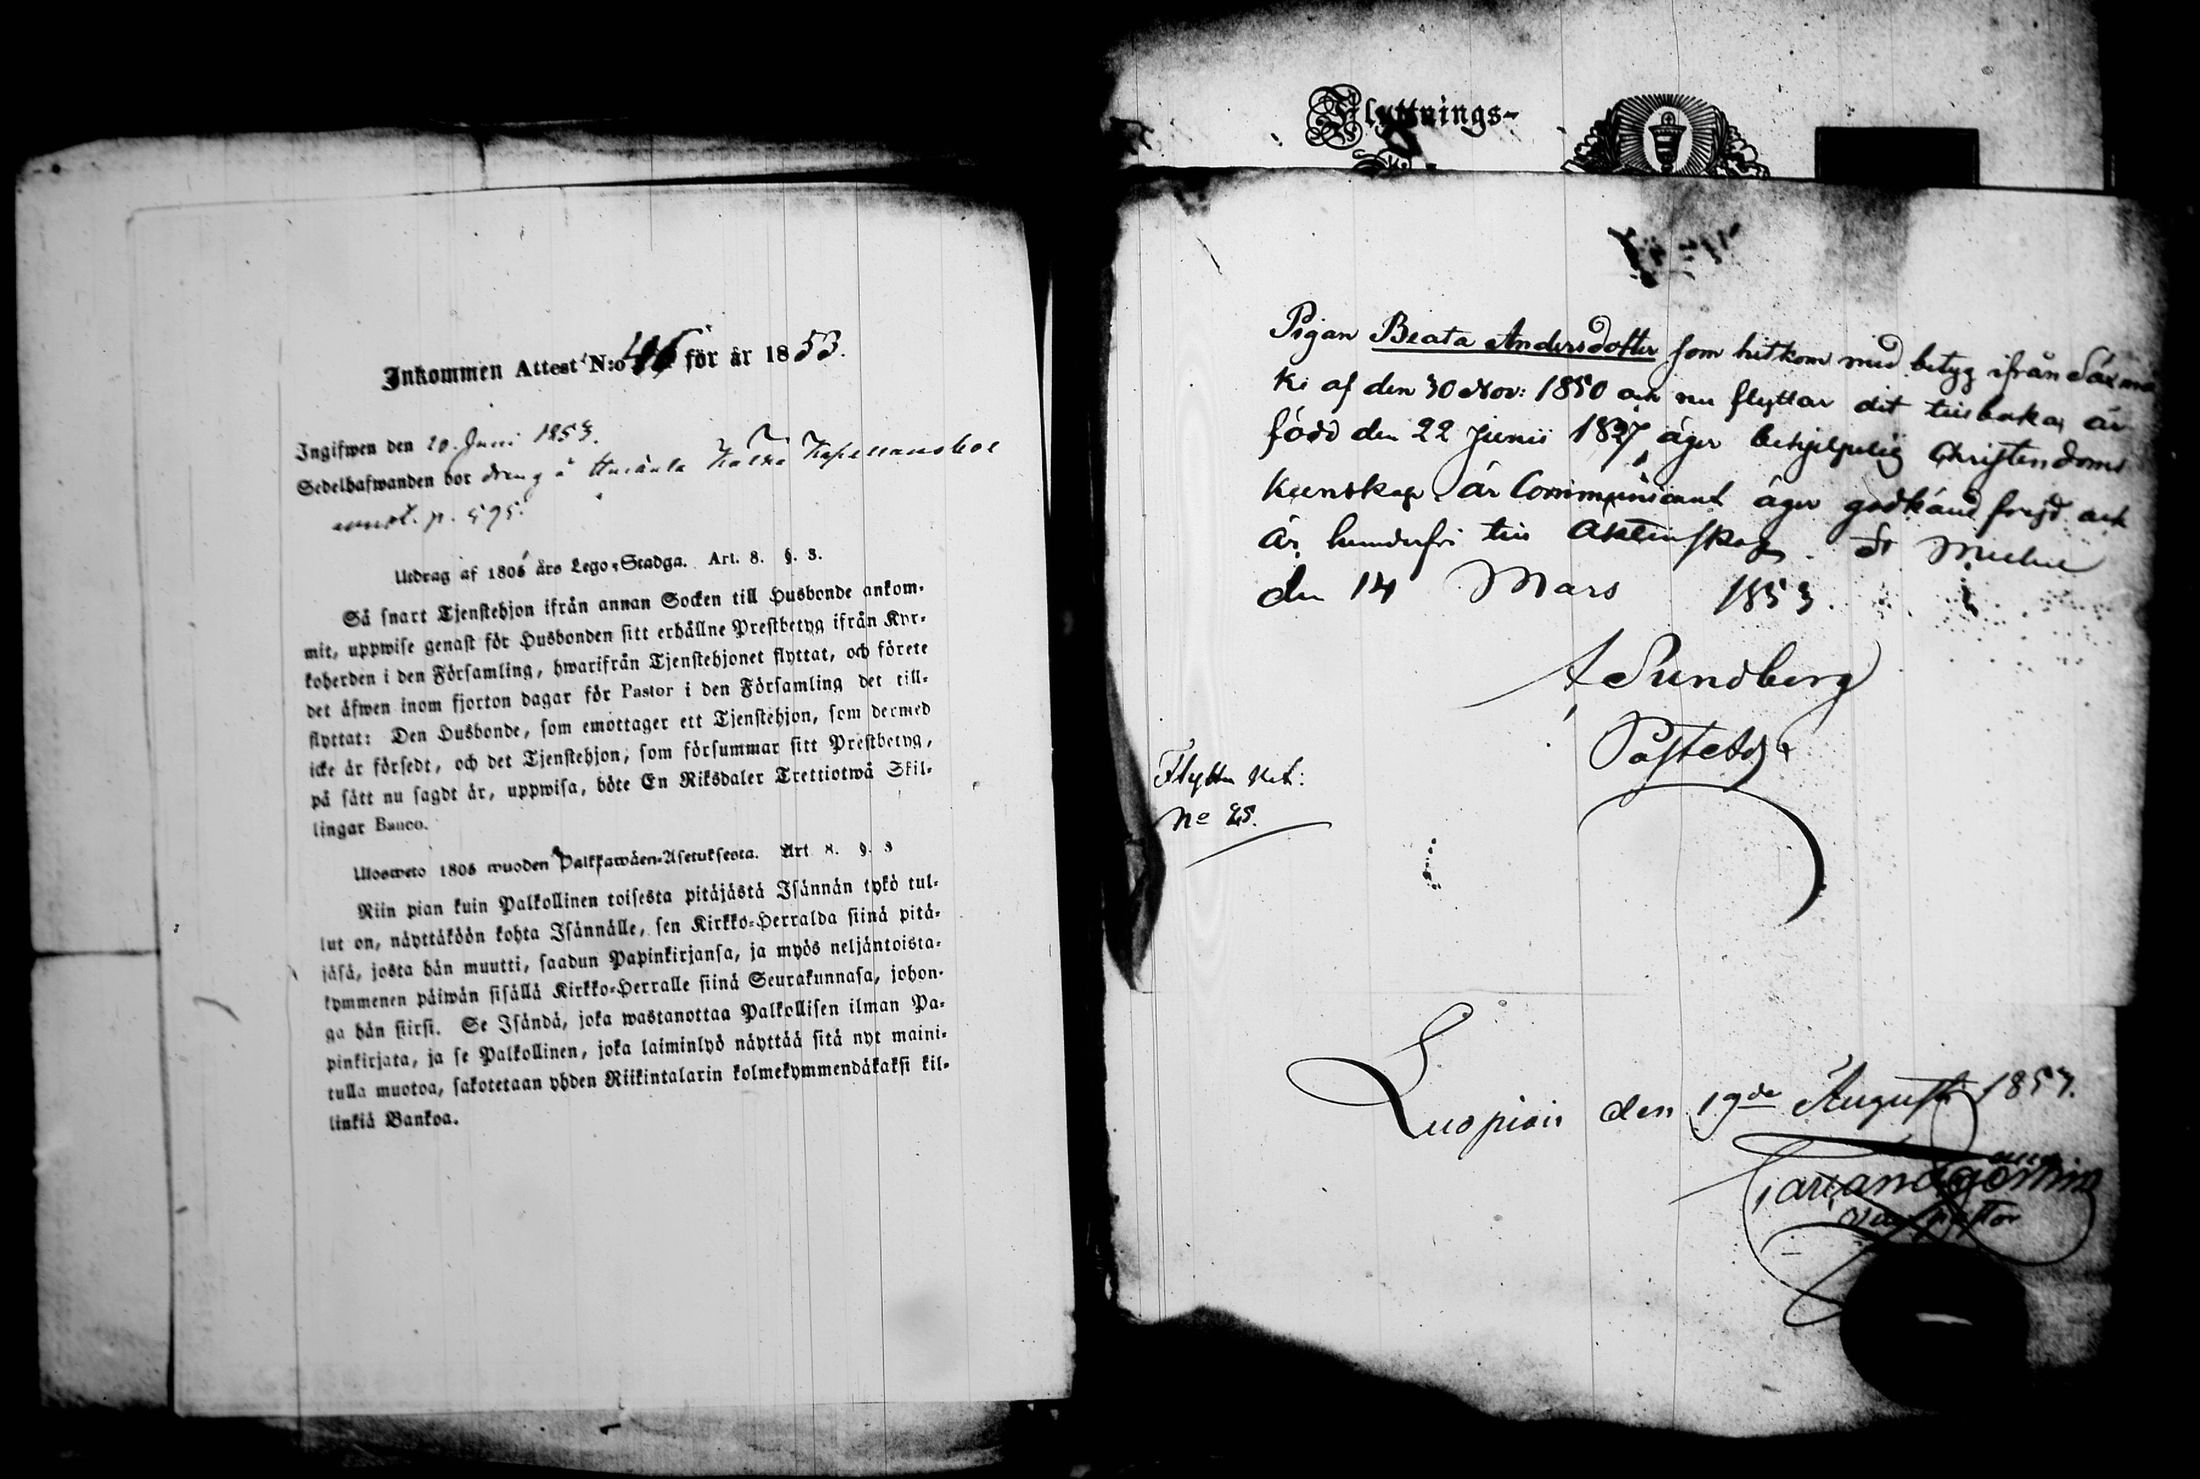 Inkommen Attest N:o 46 för år 1853.
Ingifwen den 20. Juni 1853.
Sedelhafwanden bor dreng å Kapellansbol
p. 595.
Utdrag af 1805 års Lego-Stadga. Art. 8. §. 3.
Så snart Tjenstehjon ifrån annan Socken till Husbonde ankom-
mit, uppwise genast för Husbonden sitt erhållne Prestbetyg ifrån Kyr-
koherden i den Församling, hwarifrån Tjenstehjonet flyttat, och förete
det äfwen inom fjorton dagar för Pastor i den Församling det till-
flyttat: Den Husbonde, som emottager ett Tjenstehjon, som dermed
icke är försedt, och det Tjenstehjon, som försummar sitt Prestbetyg,
på sätt nu sagdt är, uppwisa, böte En Riksdaler Trettiotwå Skil-
lingar Banco.
Ulosweto 1805 wuoden Palkkawäen-Asetuksesta. Art 8. §. 3
Niin pian kuin Palkollinen toisesta pitäjästä Isännän tykö tul-
lut on, näyttäköön kohta Isännälle, sen Kirkko-Herralda siinä pitä-
jäsä, josta hän muutti, saadun Papinkirjansa, ja myös neljäntoista-
kymmenen päiwän sisällä Kirkko-Herralle siinä Seurakunnasa, johon-
ga hän siirsi. Se Isändä, joka wastanottaa Palkollisen ilman Pa-
pinkirjata, ja se Palkollinen, joka laiminlyö näyttää sitä nyt maini-
tulla muotoa, sakotetaan yhden Riikintalarin kolmekymmendäkaksi kil-
linkiä Bankoa.
Flyttnings-
Pigan Beata Andersdotter som hitkom med betyg ifrån Sáxmä
ki af den 30 Nov: 1850 och nu flyttar dit tillbaka, är
född den 22 Junii 1827, äger behjelpelig Christendoms
kunskap, är Communicant äger godkänd frejd och
är hinderfri till Äktenskap. St Michel
den 14 Mars 1853.
A Sundberg
Past Adj
Flyttn Att:
No 25.
Luopiois den 19de Augusti 1853.
pastor